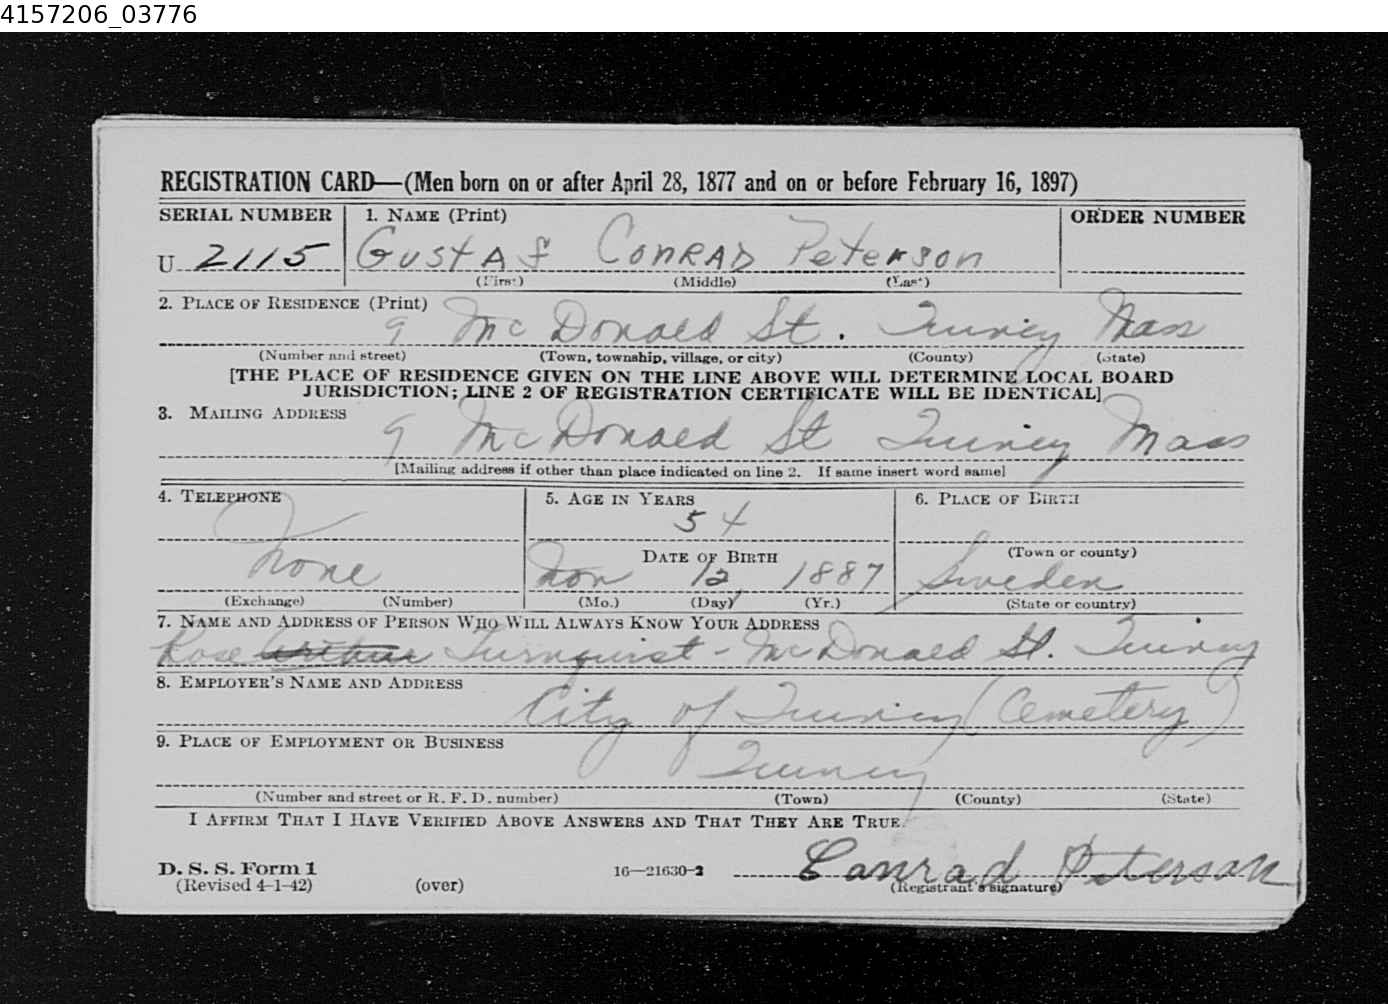 4157206_03776
REGISTRATION CARD—(Men born on or after April 28, 1877 and on or before February 16, 1897)
SERIAL NUMBER 1. NAME (Print) ORDER NUMBER
U 2115 GUSTAf CONRAD PeteRson
(First) (Middle) (Last)
2. PLACE OF RESIDENCE (Print)
9 McDonald St. Quincy Mass
(Number and street) (Town, township, village, or city) (County) (State)
[THE PLACE OF RESIDENCE GIVEN ON THE LINE ABOVE WILL DETERMINE LOCAL BOARD
JURISDICTION; LINE 2 OF REGISTRATION CERTIFICATE WILL BE IDENTICAL]
3. MAILING ADDRESS
9 McDonald St Quincy Mass
[Mailing address if other than place indicated on line 2. If same insert word same]
4. TELEPHONE 5. AGE IN YEARS 6. PLACE OF BIRTH
54
DATE OF BIRTH (Town or county)
None Nov 12 1887 Sweden
(Exchange) (Number) (Mo.) (Day) (Yr.) (State or country)
7. NAME AND ADDRESS OF PERSON WHO WILL ALWAYS KNOW YOUR ADDRESS
Rose Arthur Turnquist - McDonald St. Quincy
8. EMPLOYER'S NAME AND ADDRESS
City of Quincy (Cemetery)
9. PLACE OF EMPLOYMENT OR BUSINESS
Quincy
(Number and street or R. F. D. number) (Town) (County) (State)
I AFFIRM THAT I HAVE VERIFIED ABOVE ANSWERS AND THAT THEY ARE TRUE.
D. S. S. Form 1
(Revised 4-1-42) (over) 16—21630-2 Conrad Peterson
(Registrant's signature)